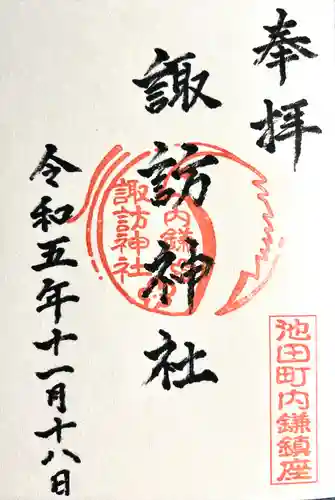 奉拝
諏訪神社
内鎌
諏訪神社
令和五年十一月十八日
池田町内鎌鎮座